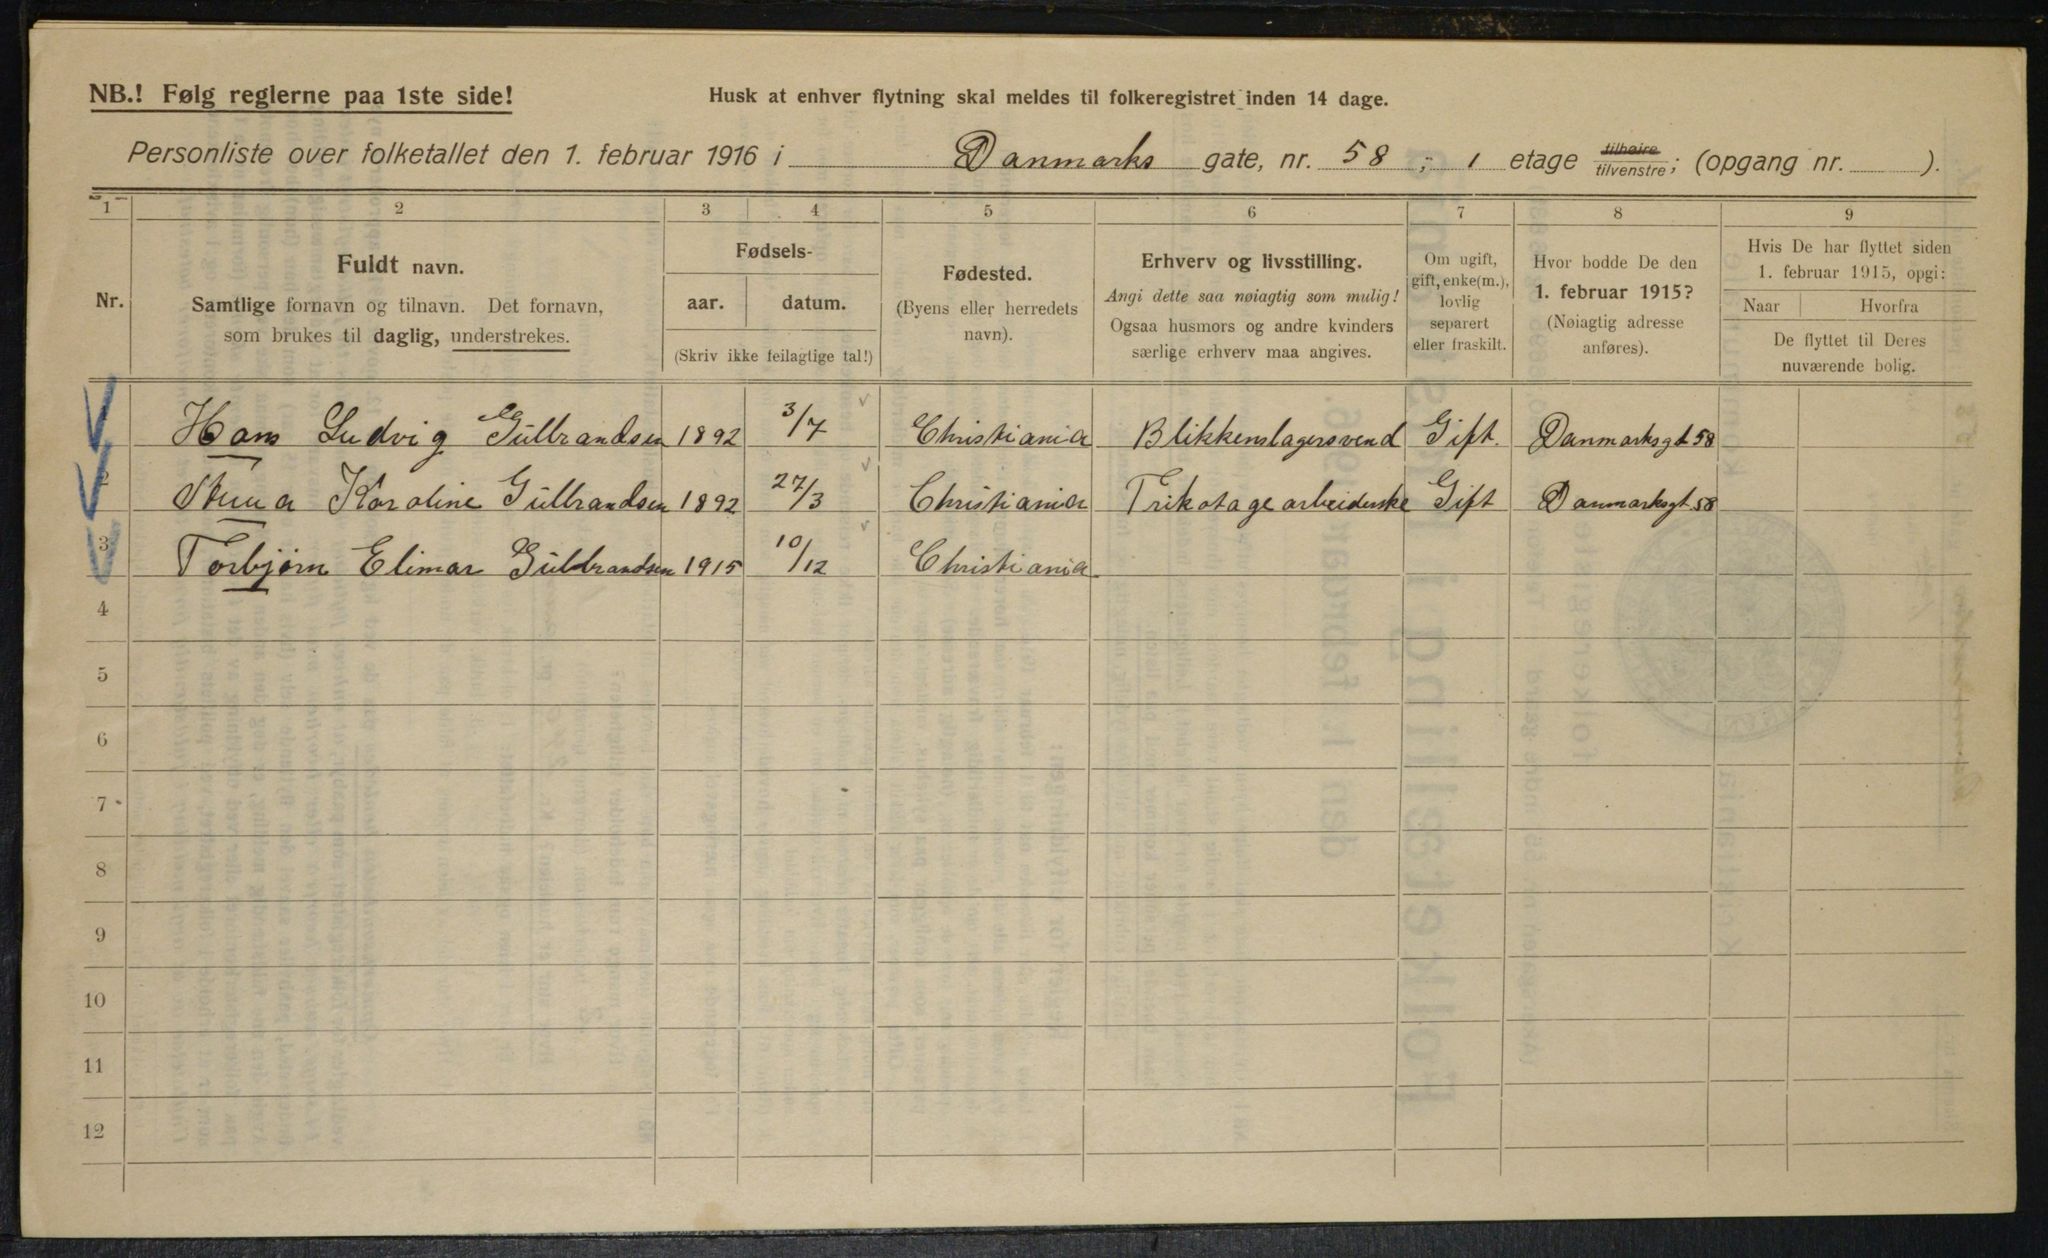 NB.! Følg reglerne paa 1ste side!
Husk at enhver flytning skal meldes til folkeregistret inden 14 dage.
Personliste over folketallet den 1. februar 1916 i Danmarks gate, nr. 58; 1 etage tilhøire/tilvenstre; (opgang nr. ).
1 2 3 4 5 6 7 8 9
Nr.
Fuldt navn.
Samtlige fornavn og tilnavn. Det fornavn,
som brukes til daglig, understrekes.
Fødsels-
aar. datum.
(Skriv ikke feilagtige tal!)
Fødested.
(Byens eller herredets
navn).
Erhverv og livsstilling.
Angi dette saa nøiagtig som mulig!
Ogsaa husmors og andre kvinders
særlige erhverv maa angives.
Om ugift,
gift, enke(m.),
lovlig
separert
eller fraskilt.
Hvor bodde De den
1. februar 1915?
(Nøiagtig adresse
anføres).
Hvis De har flyttet siden
1. februar 1915, opgi:
Naar Hvorfra
De flyttet til Deres
nuværende bolig.
Hans Ludvig Gulbrandsen 1892 3/7 Christiania Blikkenslagersvend Gift. Danmarksgt 58
2 Karoline Gulbrandsen 1892 27/3 Christiania Trikotagearbeiderske Gift Danmarksgt 58
3 Torbjørn Elimar Gulbrandsen 1915 10/12 Christiania
4
5
6
7
8
9
10
11
12